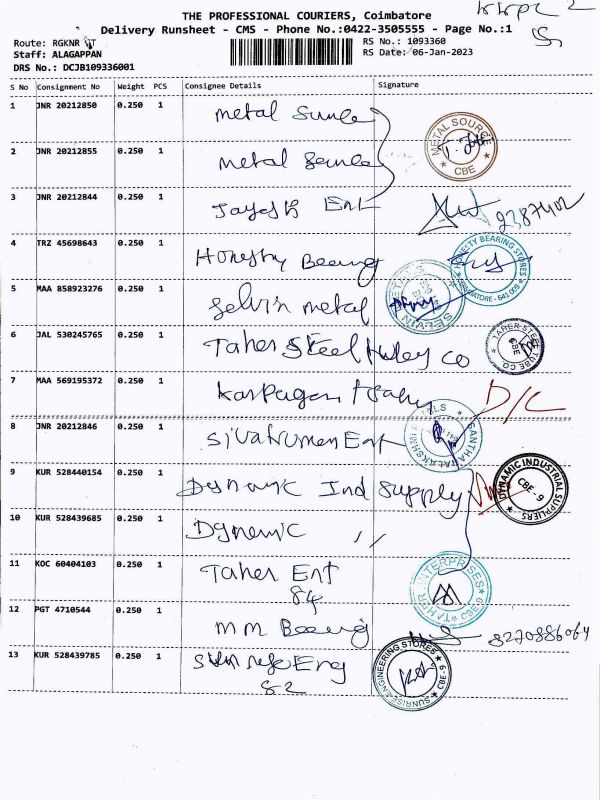 THE PROFESSIONAL COURIERS, Coimbatore
Delivery Runsheet - CMS - Phone No.:0422-3505555 - Page No.:1
Route: RGKNR ST
Staff: ALAGAPPAN
DRS No.: DCJB109336001
RS No.: 1093360
RS Date: 06-Jan-2023
S No Consignment No Weight PCS Consignee Details Signature
1 JNR 20212850 0.250 1 Metal
METAL SOURCE CBE
2 JNR 20212855 0.250 1 Metal
3 JNR 20212844 0.250 1 Jayesh Ent
4 TRZ 45698643 0.250 1 Honesty Bearing
HONESTY BEARING STORES COIMBATORE - 641 009
5 MAA 858923276 0.250 1 Selvin metal
SELVIN METALS
6 JAL 530245765 0.250 1 Taher Steel Co
TAHER STEEL TUBE CO CBE
7 MAA 569195372 0.250 1 D/C
8 JNR 20212846 0.250 1 Ent
9 KUR 528440154 0.250 1 Dynamic Ind Supply
DYNAMIC INDUSTRIAL SUPPLIERS CBE - 9
10 KUR 528439685 0.250 1 Dynemic 〃
11 KOC 60404103 0.250 1 Taher Ent
84
TAHER ENTERPRISES CBE-9
12 PGT 4710544 0.250 1 MM Bearing
8270886064
13 KUR 528439785 0.250 1 Eng
82
SUNRISE ENGINEERING STORES CBE